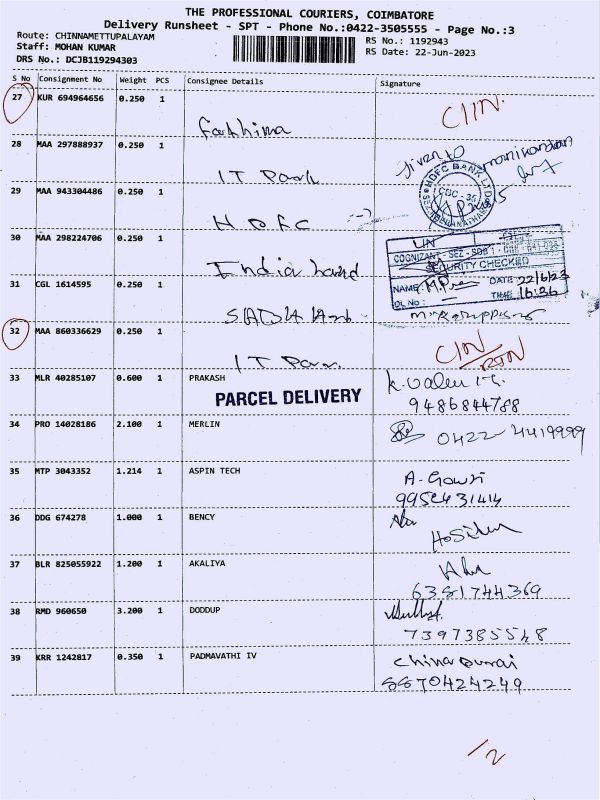 THE PROFESSIONAL COURIERS, COIMBATORE
Delivery Runsheet - SPT - Phone No.:0422-3505555 - Page No.:3
Route: CHINNAMETTUPALAYAM RS No.: 1192943
Staff: MOHAN KUMAR RS Date: 22-Jun-2023
DRS No.: DCJB119294303
S No Consignment No Weight PCS Consignee Details Signature
27 KUR 694964656 0.250 1
CIIN.
Fathima
28 MAA 297888937 0.250 1
given to manikandan
HDFC BANK LTD
IT Park
29 MAA 943304486 0.250 1
HDFC
30 MAA 298224706 0.250 1
COGNIZANT - SEZ - SDB 1
SECURITY CHECKED
India Land
31 CGL 1614595 0.250 1
NAME: DATE: 22/6/23
DL No : TIME: 16:26
32 MAA 860336629 0.250 1
CIN
IT Park
33 MLR 40285107 0.600 1 PRAKASH
PARCEL DELIVERY
9486844788
34 PRO 14028186 2.100 1 MERLIN
0422 4419999
35 MTP 3043352 1.214 1 ASPIN TECH
A. Gowri
36 DDG 674278 1.000 1 BENCY
37 BLR 825055922 1.200 1 AKALIYA
6381744369
38 RMD 960650 3.200 1 DODDUP
7397385548
39 KRR 1242817 0.350 1 PADMAVATHI IV
Chinadurai
8870424249